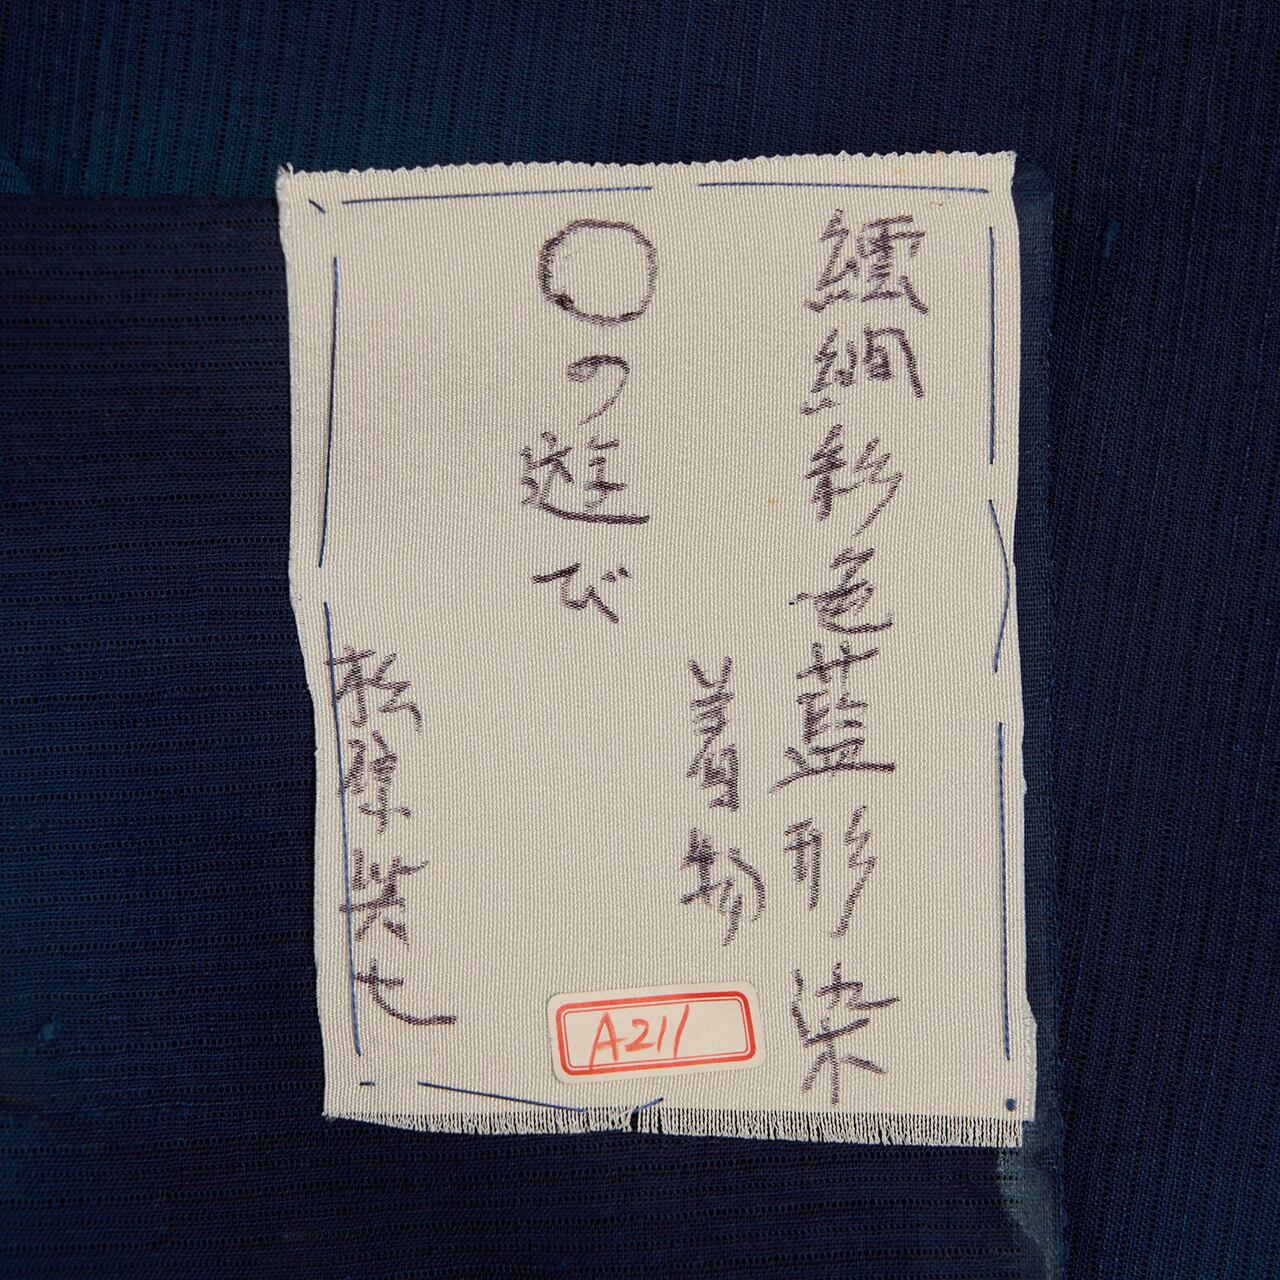 繧繝彩色藍形染
着物
〇の遊び
松原與七
A211